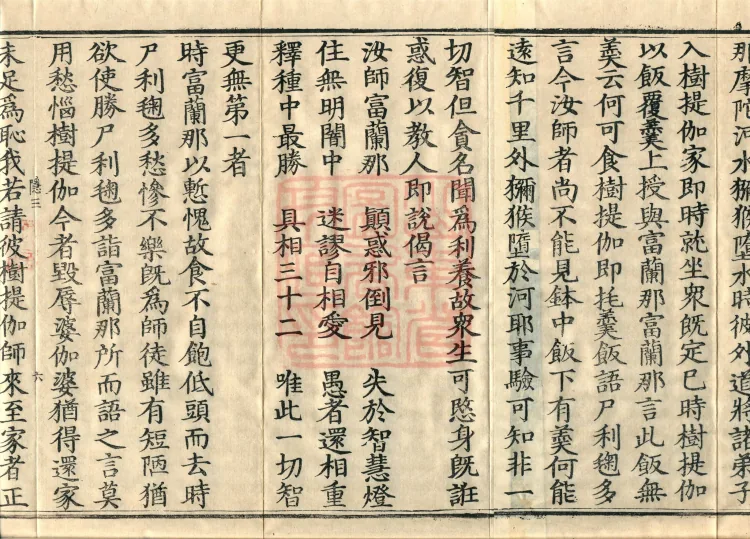 那摩陁河水獼猴墮水時彼外道將諸弟子
入樹提伽家即時就坐衆旣定已時樹提伽
以飯覆羹上授與富蘭那富蘭那言此飯無
羹云何可食樹提伽即抂羹飯語尸利毱多
言今汝師者尚不能見鉢中飯下有羹何能
遠知千里外獼猴墮於河耶事驗可知非一
切智但貪名聞爲利養故衆生可愍身旣誑
惑復以教人即說偈言
汝師富蘭那 顚惑邪倒見 失於智慧燈
住無明闇中 迷謬自相愛 愚者還相重
釋種中最勝 具相三十二 唯此一切智
更無第一者
時富蘭那以慙愧故食不自飽低頭而去時
尸利毱多愁慘不樂旣爲師徒雖有短陋猶
欲使勝尸利毱多詣富蘭那所而語之言莫
用愁惱樹提伽今者毀辱婆伽婆猶得還家
隱三 六
未足爲恥我若請彼樹提伽師來至家者正